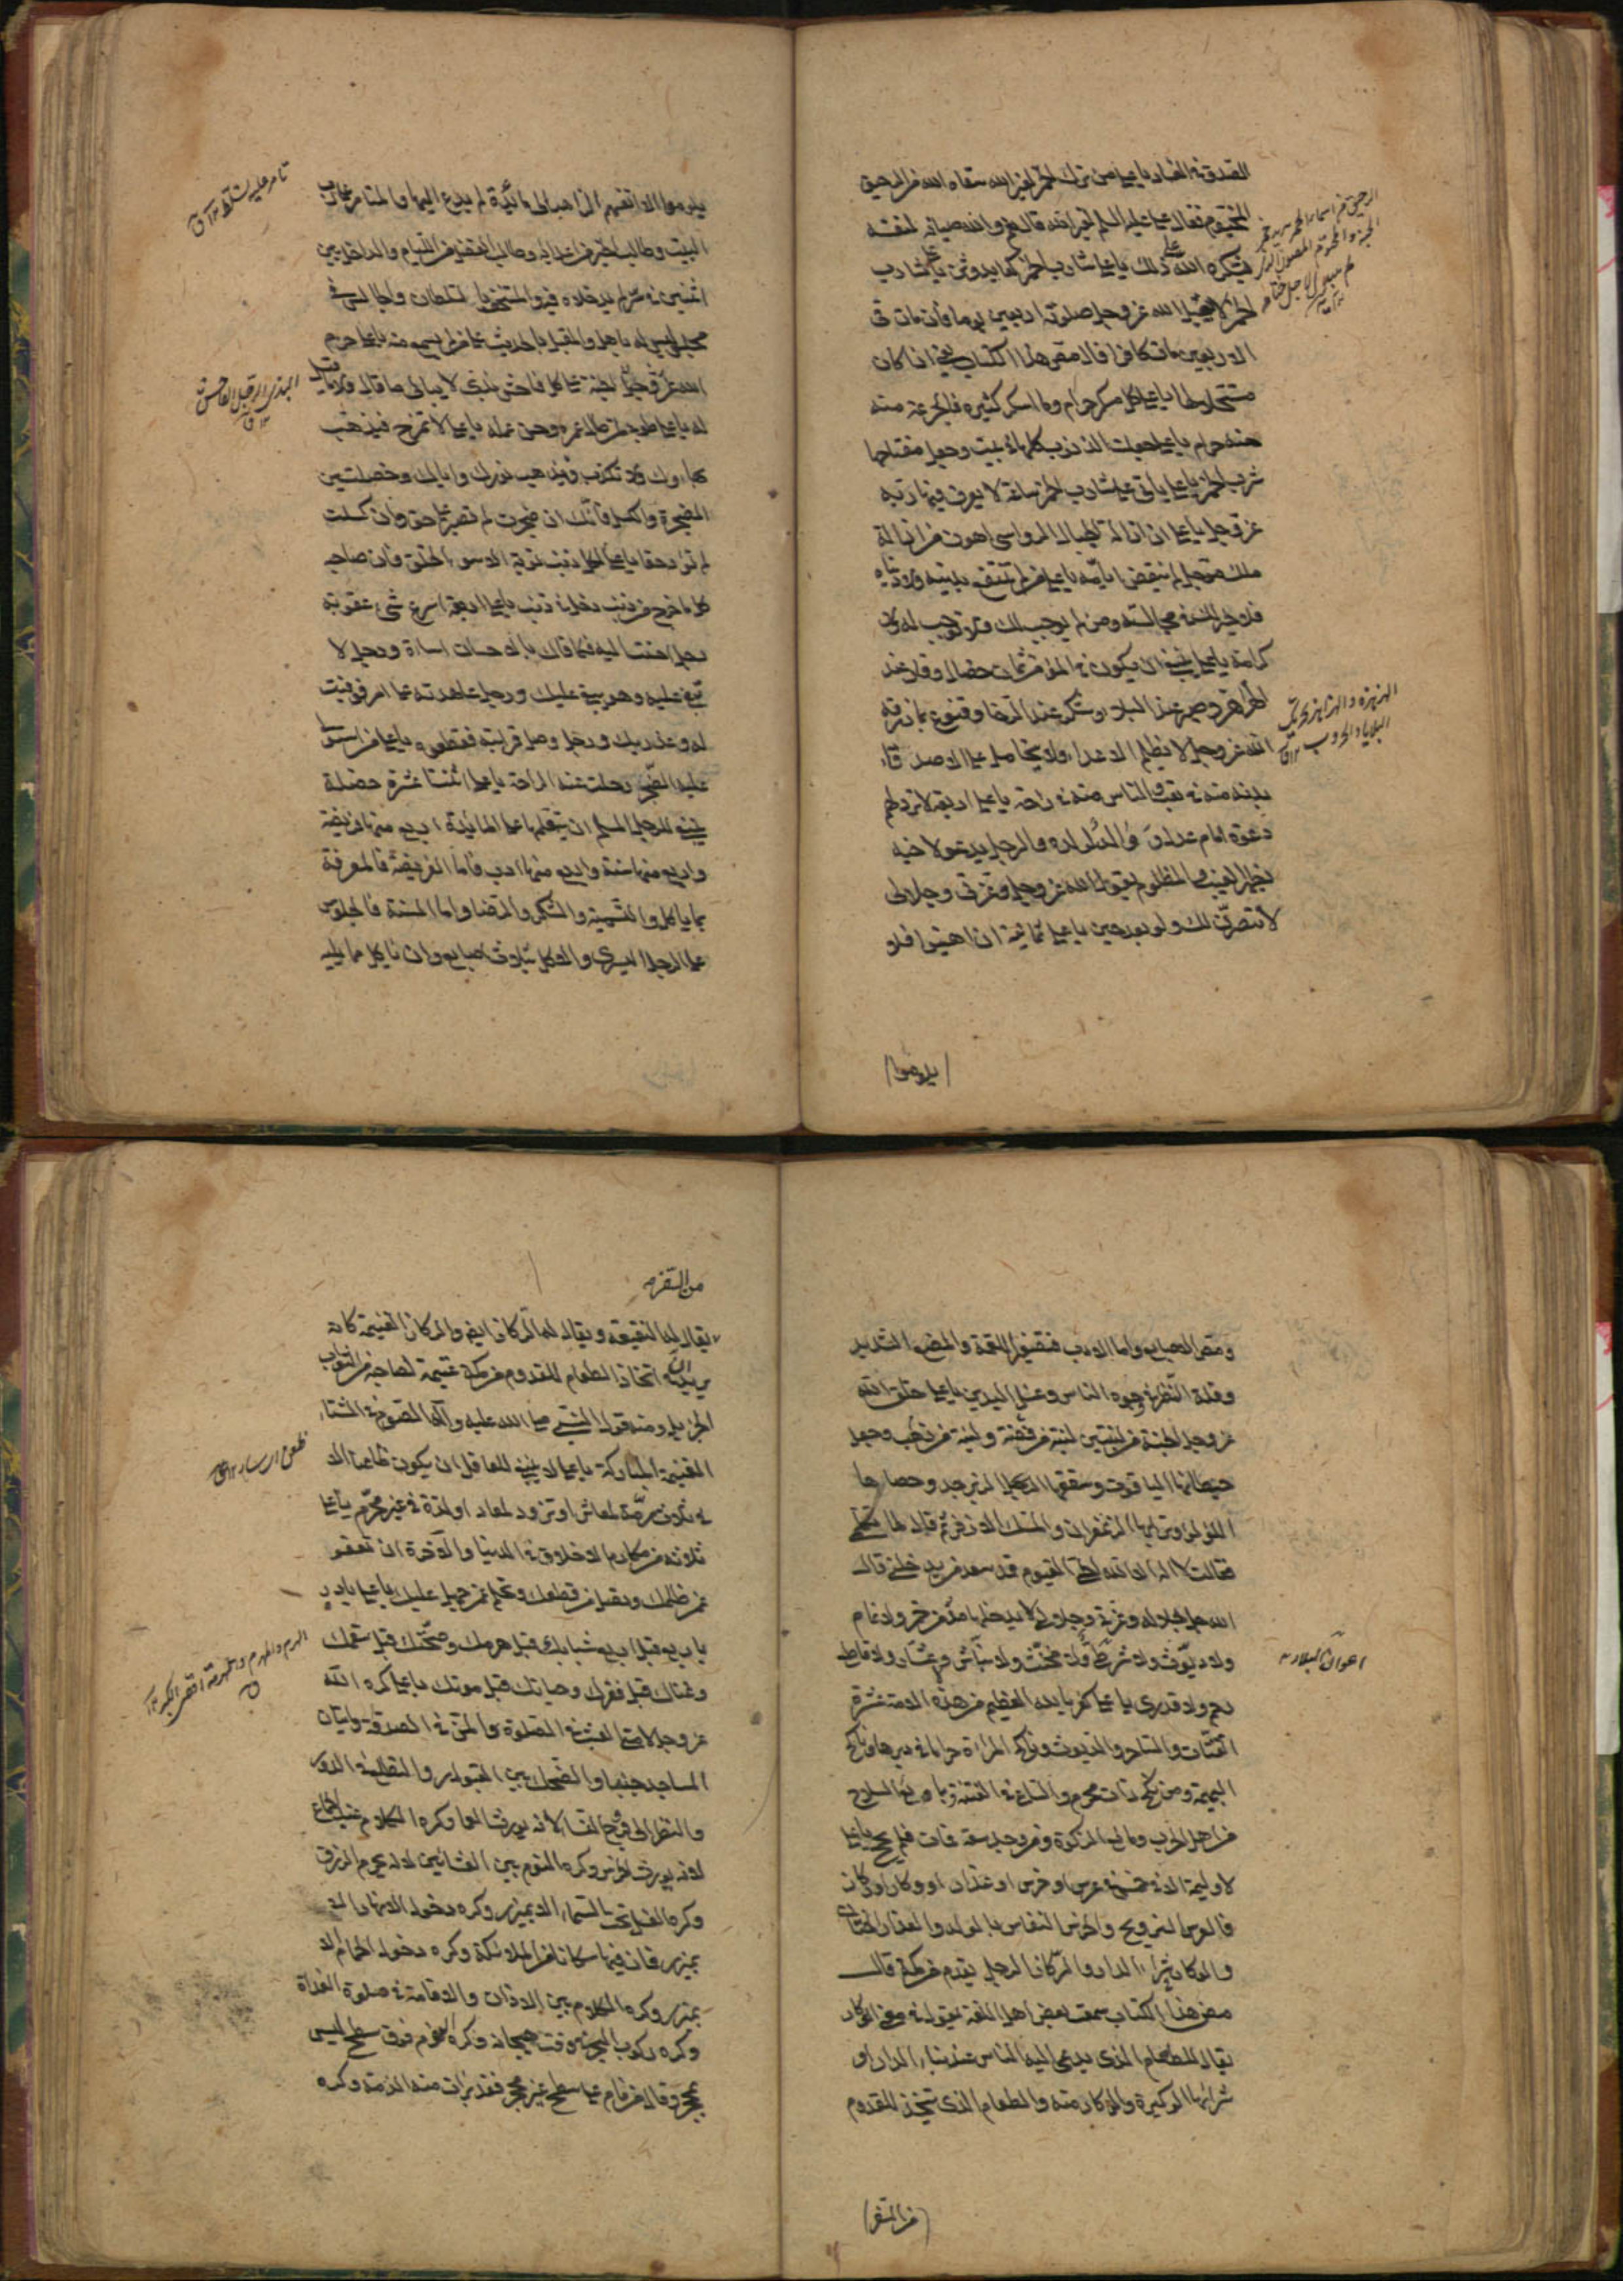 الصدق في الفساد يا علي من ترك الخمر لغير الله سقاه الله من الرحيق
المختوم فقال علي عليه السلم لغير الله قال نعم والله صيانة لنفسه
يشكره الله على ذلك يا علي شارب الخمر كعابد وثن يا علي شارب
الخمر لا يقبل الله عز وجل صلوته اربعين يوما فان مات في
الاربعين مات كافرا قال مصنف هذا الكتاب يعني اذا كان
مستحلا لها يا علي كل مسكر حرام وما اسكر كثيره فالجرعة منه
منه حرام يا علي جعلت الذنوب كلها في بيت وجعل مفتاحها
شرب الخمر يا علي ياتي على شارب الخمر ساعة لا يعرف فيها ربه
عز وجل يا علي ان ازالة الجبال الرواسي اهون من ازالة
ملك مؤجل لم ينقض ايامه يا علي من لم تنتفع بدينه ودنياه
فلا خير لك في مجالسته ومن لم يوجب لك فلا توجب له ولا
كرامة يا علي ينبغي ان يكون في المؤمن ثمان خصال وقار عند
الهزاهز وصبر عند البلاء وشكر عند الرخا وقنوع بما رزقه
الله عز وجل لا يظلم الاعداء ولا يتحامل على الاصدقاء
بدنه منه في تعب والناس منه في راحة يا علي اربعة لا ترد لهم
دعوة امام عدل و والد لولده والرجل يدعو لاخيه
بظهر الغيب والمظلوم يقول الله عز وجل وعزتي وجلالي
لانتصرن لك ولو بعد حين يا علي ثمانية ان اهينوا فلا
يلوموا
يلوموا الا انفسهم الذاهب الى مائدة لم يدع اليها والمتامر على رب
البيت وطالب الخير من اعدائه وطالب الفضل من اللئام والداخل بين
اثنين في سر لم يدخلاه فيه والمستخف بالسلطان والجالس في
مجلس ليس له باهل والمقبل بالحديث على من لم يسمع منه يا علي حرم
الله عز وجل الجنة على كل فاحش بذي لا يبالي ما قال ولا ما قيل
له يا علي طوبى لمن طال عمره وحسن عمله يا علي لا تمزح فيذهب
بهاؤك ولا تكذب فيذهب نورك واياك وخصلتين
الضجرة والكسل فانك ان ضجرت لم تصبر على حق وان كسلت
لم تؤد حقا يا علي لكل ذنب توبة الا سوء الخلق فان صاحبه
كلما خرج من ذنب دخل في ذنب يا علي اربعة اسرع شئ عقوبة
رجل احسنت اليه فكافاك بالاحسان اساءة ورجل لا
تبغي عليه وهو يبغي عليك ورجل عاهدته على امر فوفيت
له وغدر بك ورجل وصل قرابته فقطعوه يا علي من استولى
عليه الضجر رحلت عنه الراحة يا علي اثنتا عشرة خصلة
ينبغي للرجل المسلم ان يتعلمها على المائدة اربع منها فريضة
واربع منها سنة واربع منها ادب فاما الفريضة فالمعرفة
بما ياكل والتسمية والشكر والرضا واما السنة فالجلوس
على الرجل اليسرى والاكل بثلاث اصابع وان ياكل مما يليه
ومص الاصابع واما الادب فتصغير اللقمة والمضغ الشديد
وقلة النظر في وجوه الناس وغسل اليدين يا علي خلق الله
عز وجل الجنة من لبنتين لبنة من فضة ولبنة من ذهب وجعل
حيطانها الياقوت وسقفها الزبرجد وحصاها
اللؤلؤ وترابها الزعفران والمسك الاذفر ثم قال لها تكلمي
فقالت لا اله الا الله الحي القيوم قد سعد من يدخلني قال
الله جل جلاله وعزتي وجلالي لا يدخلها مدمن خمر ولا نمام
ولا ديوث ولا شرطي ولا مخنث ولا نباش ولا عشار ولا قاطع
رحم ولا قدري يا علي كفر بالله العظيم من هذه الامة عشرة
القتات والساحر والديوث وناكح المراة حراما في دبرها وناكح
البهيمة ومن نكح ذات محرم والساعي في الفتنة وبايع السلاح
من اهل الحرب ومانع الزكوة ومن وجد سعة فمات فلم يحج يا علي
لا وليمة الا في خمس في عرس او خرس او عذار او وكار او ركاز
فالعرس التزويج والخرس النفاس بالولد والعذار الختان
والوكار في شراء الدار والركاز الرجل يقدم من مكة قال
مصنف هذا الكتاب سمعت بعض اهل اللغة يقول في معنى الوكار
يقال للطعام الذي يدعى اليه الناس عند بناء الدار او
شرائها الوكيرة والوكار منه والطعام الذي يتخذ للقدوم
من السفر
من السفر
يقال له النقيعة ويقال له الركاز ايضا والركاز الغنيمة كانه
يريد ان في اتخاذ الطعام للقدوم من مكة غنيمة لصاحبه من الثواب
الجزيل ومنه قول النبي صلى الله عليه وآله الصوم في الشتاء
الغنيمة الباردة يا علي لا ينبغي للعاقل ان يكون ظاعنا الا
في ثلاث مرمة لمعاش او تزود لمعاد او لذة في غير محرم يا علي
ثلاثة من مكارم الاخلاق في الدنيا والآخرة ان تعفو
عمن ظلمك وتصل من قطعك وتحلم عمن جهل عليك يا علي بادر
باربع قبل اربع شبابك قبل هرمك وصحتك قبل سقمك
وغناك قبل فقرك وحياتك قبل موتك يا علي كره الله
عز وجل لامتي العبث في الصلوة والمن في الصدقة واتيان
المساجد جنبا والضحك بين القبور والتطلع في الدور
والنظر الى فروج النساء لانه يورث العمى وكره الكلام عند الجماع
لانه يورث الخرس وكره النوم بين العشائين لانه يحرم الرزق
وكره الغسل تحت السماء الا بمئزر وكره دخول الانهار الا
بمئزر فان فيها سكانا من الملائكة وكره دخول الحمام الا
بمئزر وكره الكلام بين الاذان والاقامة في صلوة الغداة
وكره ركوب البحر في وقت هيجانه وكره النوم فوق سطح ليس
بمحجر وقال من نام على سطح غير محجر فقد برئت منه الذمة وكره